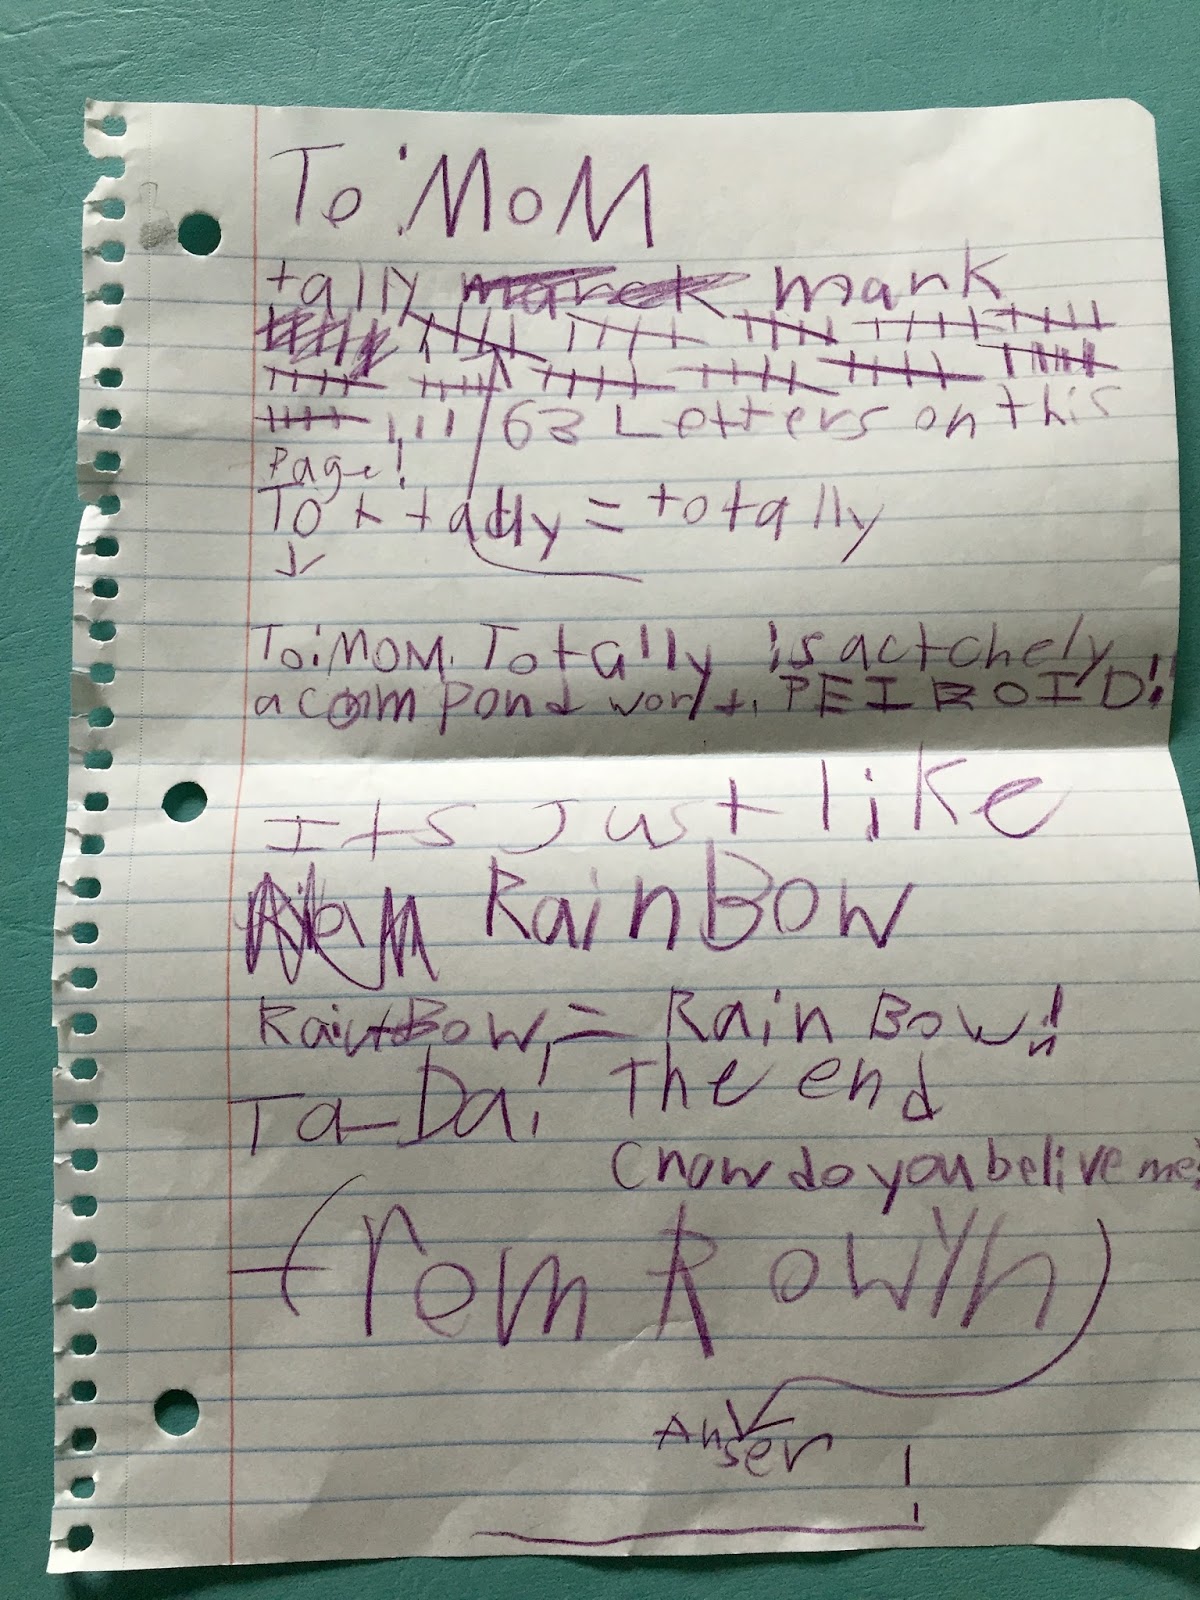 To: MOM
tally marck mark
63 Letters on this
Page!
To + tally = totally
To: MOM. Totally is actchely
a compond word. PEIROID!!
Its Just like
RainBow
Rain+Bow, = Rain Bow!!
Ta-Da! The end
(now do you belive me?
from Rowyn)
Anser !